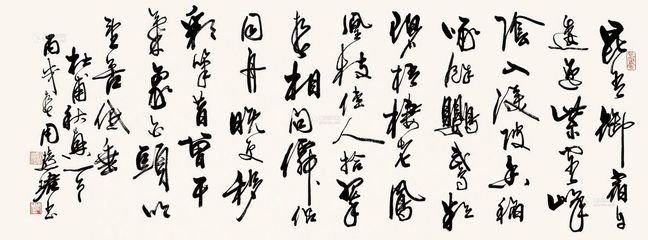 昆吾御宿自
逶迤紫閣峰
陰入渼陂香稻
啄餘鸚鵡粒
碧梧棲老鳳
凰枝佳人拾翠
春相問僊侶
同舟晚更移
彩筆昔曾干
氣象白頭吟
望苦低垂
杜甫秋興一首
丙戌周慧珺書